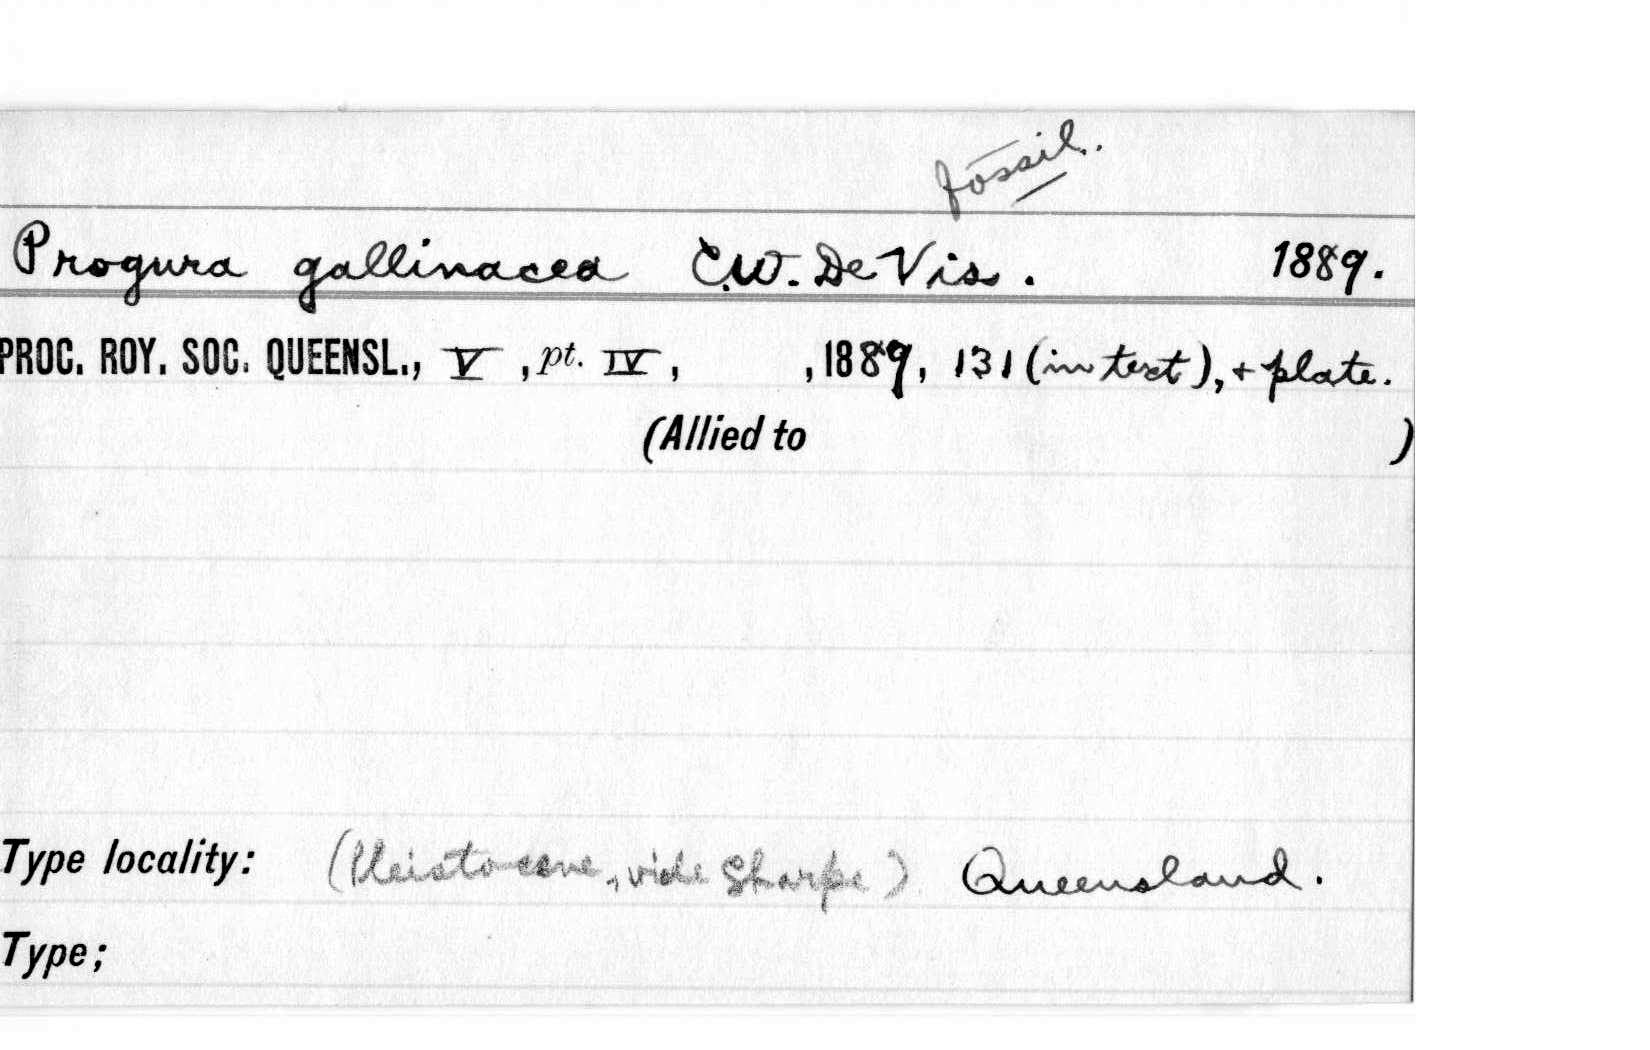 fossil.
Progura gallinacea C.W. De Vis. 1889.
PROC. ROY. SOC. QUEENSL., V, pt. IV, , 1889, 131 (in text), + plate.
(Allied to )
Type locality: (Pleistocene, vide Sharpe) Queensland.
Type;